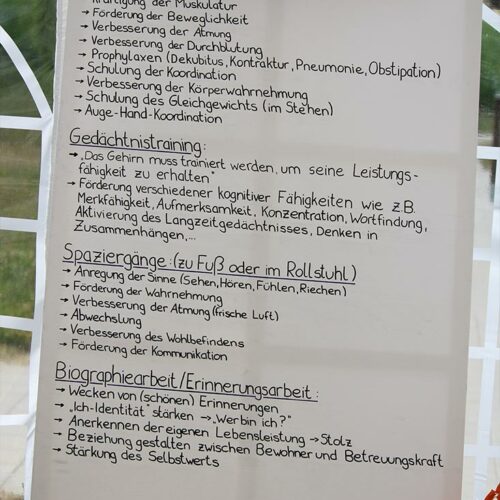 → Kräftigung der Muskulatur
→ Förderung der Beweglichkeit
→ Verbesserung der Atmung
→ Verbesserung der Durchblutung
→ Prophylaxen (Dekubitus, Kontraktur, Pneumonie, Obstipation)
→ Schulung der Koordination
→ Verbesserung der Körperwahrnehmung
→ Schulung des Gleichgewichts (im Stehen)
→ Auge-Hand-Koordination
Gedächtnistraining:
→ „Das Gehirn muss trainiert werden, um seine Leistungs-
fähigkeit zu erhalten"
→ Förderung verschiedener kognitiver Fähigkeiten wie z.B.
Merkfähigkeit, Aufmerksamkeit, Konzentration, Wortfindung,
Aktivierung des Langzeitgedächtnisses, Denken in
Zusammenhängen,...
Spaziergänge: (zu Fuß oder im Rollstuhl)
→ Anregung der Sinne (Sehen, Hören, Fühlen, Riechen)
→ Förderung der Wahrnehmung
→ Verbesserung der Atmung (frische Luft)
→ Abwechslung
→ Verbesserung des Wohlbefindens
→ Förderung der Kommunikation
Biographiearbeit/Erinnerungsarbeit:
→ Wecken von (schönen) Erinnerungen
→ „Ich-Identität" stärken → „Wer bin ich?"
→ Anerkennen der eigenen Lebensleistung → Stolz
→ Beziehung gestalten zwischen Bewohner und Betreuungskraft
→ Stärkung des Selbstwerts